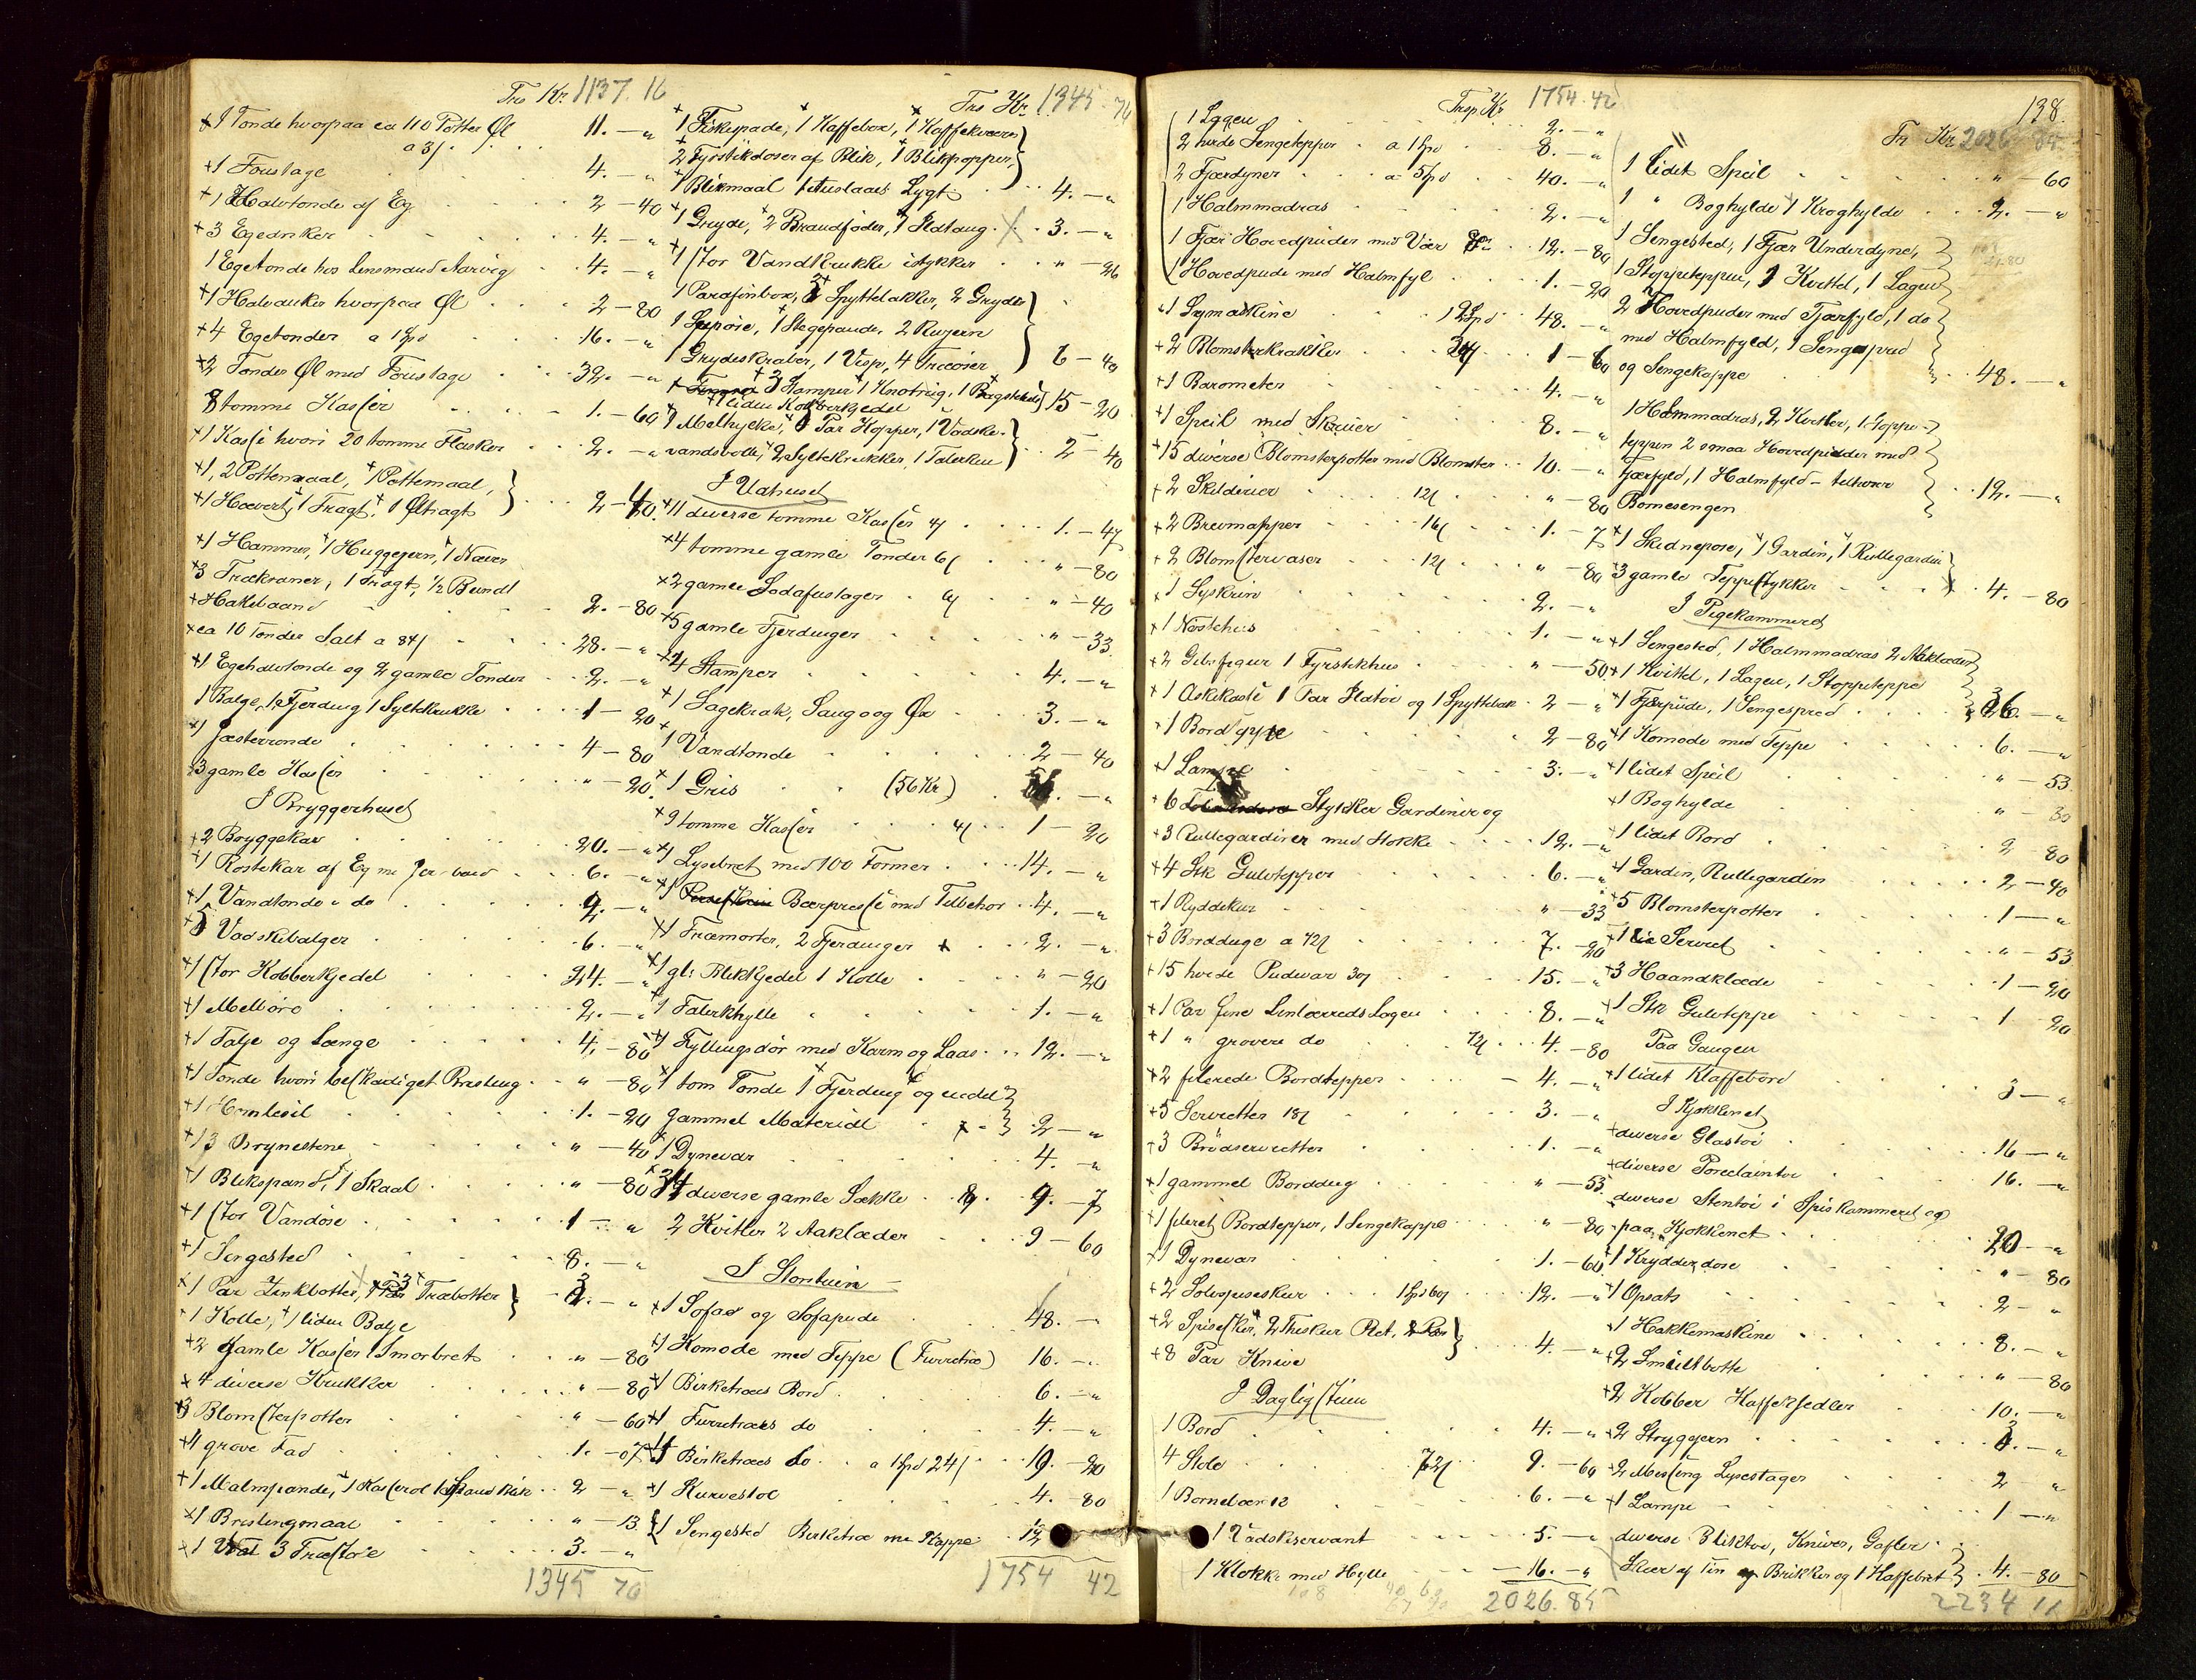 Trs Kr. 1137. 16
+1 Tønde hvorpaa ca 110 Potter Øl
a 3/. 11. — "
+1 Foustage 4. — "
+1 Halvtonde af Eg 2 — 40
+3 Egedunker 4. — "
1 Egetonde hos Lensmand Aarvig 4. — "
+1 Halvanker hvorpaa Øl 2 — 80
+4 Egetonder a 1 Spd 16. — "
+2 Tonder Øl med Foustage 32. — "
8 tomme Kasser 1. — 60
+1 Kasse hvori 20 tomme Flasker 2. — "
+1, 2 Pottemaal, +1 Pottemaal,
+1 Hævert, +1 Tragt, +1 Øltragt 2 — 40
+1 Hammer, +1 Huggejern, +1 Naver
+3 Trækraner, 1 Tragt, 1/2 Bundt
+Hakebaand 2. — 80
+ca 10 Tønder Salt a 84/ 28. — "
+1 Egehalvtonde og 2 gamle Tonder 2. — "
1 Balge, 1 Fjerding 1 Syltekrukke 1 — 20
+1 Jæsterronde 4 — 80
+3 gamle Kasser " — 20
I Bryggerhuset
+2 Bryggekar 20. — "
+1 Rostekar af Eg m Jernbaand 6. — "
+1 Vandtonde " do 4. — "
+5 Vadskebalger 6. — "
+1 stor Kobberkjedel 24. — "
+1 Melbøre 2. — "
+1 Talje og Længe 4. — 80
+1 Tonde hvori beskadiget Brisling " — 80
+1 Homlesil 1. — 20
+13 Brynestene " — 40
+1 Blikspand, +1 Skaal " — 80
+1 stor Vandøse 1 — "
+1 Sengested 8. — "
+1 Par Zinkbøtter, +3 Træbøtter
+1 Kolle, +1 liden Balje 3. — "
+2 gamle Kasser 1 Smørbret " — 80
+4 diverse Krukker " — 80
+3 Blomsterpotter " — 60
+4 grove Fad 1. — 07
+1 Malmpande, +1 Kasserol 2 — "
+1 Brislingmaal " — 13
+1 3 Træstole 3. — "
1345 76
Trs Kr. 1345 76
+1 Fiskespade, +1 Kaffebox, +1 Kaffekværn
+2 Fyrstikdoser af Blik, +1 Blikpopper,
+1 Blikmaal 1 Lygt 4. — "
+1 Gryde, +2 Brandføder, +1 Ildtang 3. — "
+1 stor Vandkrukke istykker " — 26
1 Parafinbox, 2 Spyttebakker, 2 Gryder
1 Supøse, +1 Stegepande, 2 Rujern
1 Grydeskraber, 1 Visp, 4 Træøser 6 — 40
+3 Stamper 1 Knotriig, 1 Bagstehelle
+1 liden Kobberkjedel 15 — 20
+1 Melhylke, 1 Par Kopper, 1 Vadske-
vandsbolle, +2 Syltekrukker, 1 Talerken 2 — 40
I Udhuset
+11 diverse tomme Kasser 4/ 1. — 47
+4 tomme gamle Tonder 6/ " — 80
+2 gamle Sodafustager 6/ " — 40
+5 gamle Fjerdinger " — 33
+4 Stamper 4. — "
+1 Sagekrak, Saug og Øx 3. — "
+1 Vandtonde 2 — 40
+1 Gris (56 Kr) 56. — "
+9 tomme Kasser 4/ 1 — 20
+1 Lysebret med 100 Former 14. — "
+1 Bærpresse med Tilbehor 4. — "
+1 Træmorter, 2 Fjerdinger 2. — "
+1 gl: Blikkjedel 1 Kolle " — 20
+1 Talerkhylle 1. — "
+1 Fyllingsdør med Karm og Laas 12. — "
+1 tom Tonde 1 Fjerding og endel
gammel Materiel 2 — "
+1 Dynevar 4. — "
+34 diverse gamle Sække 8/ 9. — 7
2 Kvitler 2 Aaklæder 9 — 60
I Storstuen
+1 Sofa og Sofapude 48. —
+1 Komode med Teppe (Furretræ) 16. — "
+1 Birketræes Bord 6. — "
+1 Furretræes do 4. — "
+4 Birketræes do a 1 Spd 24/ 19. — 20
+1 Kurvestol 4. — 80
+1 Sengested Birketræ m Kappe 12
1754 42
Trsp Kr 1754. 42
1 Lagen 2. — "
2 hvide Sengetepper a 1 Spd 8. — "
2 Fjærdyner a 5 Spd 40. — "
1 Halmmadras 2. — "
1 Fjær Hovedpuder med Vær 12. — 80
1 Hovedpude med Halmfyl 1. — 20
+1 Symaskine 12 Spd 48. — "
+2 Blomsterkrakker 24/ 1 — 60
+1 Barometer 4. — "
+1 Speil med Skuier 8. — "
+15 diverse Blomsterpotter med Blomster 10. — "
+2 Skilderier 12/ " — 80
+2 Brevmapper 16/ 1. — 7
+2 Blomstervaser 12/ " — 80
+1 Syskrin 2. — "
+1 Nøstehus 1. — "
+2 Gibsfigur 1 Fyrstikhus " — 50
+1 Askekaste 1 Par Ildtøi og 1 Spyttebak 2 — "
+1 Bord 2 — 80
+1 Lampe 3. — "
+6 Stykker Gardiner og
+3 Rullegardiner med Stokke 12. — "
+4 Stk Gulvtepper 6. — "
+1 Ryddekur " — 33
+3 Bordduge a 72/ 7. — 20
+15 hvide Pudevar 30/ 15. — "
+1 Par fine Linlærreds Lagen 8. — "
+1 " grovere do 72/ 4. — 80
+2 filerede Bordtepper 4. — "
+5 Servietter 18/ 3. — "
+3 Brødservietter 1. — "
+1 gammel Borddug " — 53
+1 fileret Bordtepper, 1 Sengekappe " — 80
+1 Dynevar 1. — 60
+2 Solvspiseskeer 1 Spd 60/ 12. — "
+2 Spiseskeer, 2 Theskeer Plet,
+8 Par Knive 4. — "
I Dagligstuen
1 Bord 4. — "
4 Stole 72/ 9. — 60
1 Bornelænis 6. — "
1 Vadskeservant 5. — "
1 Klokke med Hylle 16. — "
2026. 85
138.
Tr Kr 2026 85
1 lidet Speil " — 60
1 " Boghylde 1 Kroghylde 2. — "
1 Sengested, 1 Fjær Underdyne,
1 Stoppeteppe, 1 Kvittel, 1 Lagen
2 Hovedpuder med Fjærfyld, 1 do
med Halmfyld, 1 Sengespred
og Sengekappe 48. — "
1 Halmmadras, 2 Kvitler, 1 Stoppe-
teppen 2 smaa Hovedpuder med
Fjærfyld, 1 Halmfyld — tilhører
Bornesengen 12. — "
+1 Skidnepose, +1 Gardin, +1 Rullegardin
+3 gamle Teppestykker 4. — 80
I Pigekammeret
+1 Sengested, 1 Halmmadras 2 Aaklæder
+1 Kvittel, 1 Lagen, 1 Stoppeteppe
+1 Fjærpude, 1 Sengespred 36. — "
+1 Komode med Teppe 6. — "
+1 lidet Speil " — 53
+1 Boghylde " — 30
+1 lidet Bord 2 80
+1 Gardin, Rullegardin 2 — 40
+5 Blomsterpotter 1 — "
+1 Serviet " — 53
+3 Haandklæde 1 — 20
+1 Stk Gulvteppe 1 20
Paa Gangen
+1 lidet Klaffebord 3 — "
I Kjøkkenet
+diverse Glastøi 16 — "
+diverse Porcelaintøi 16. — "
diverse Stentøi i Spiskammeret og
paa Kjøkkenet 20 — "
+1 Krydderdose " — 80
+1 Opsats 2 — "
+1 Hakkemaskine 8. — "
+2 Smultbøtte " — 80
+2 Kobber Kaffekjedler 10. — "
+2 Strygjern 3. — "
+2 Messing Lysestager 2 — "
+1 Lampe 1 — "
diverse Bliktøi, Kniver, Gafler
Skeer af Tin og Brikker og 1 Kaffebret 4. — 80
2234 11